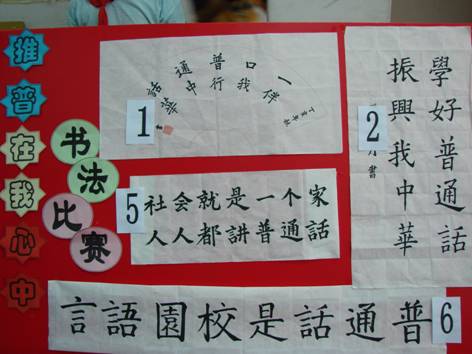 推普在我心中
书法比赛
1
一口普通話
伴我行中華
2
學好普通話
振興我中華
書
5
社会就是一个家
人人都講普通話
6
普通話是校園語言